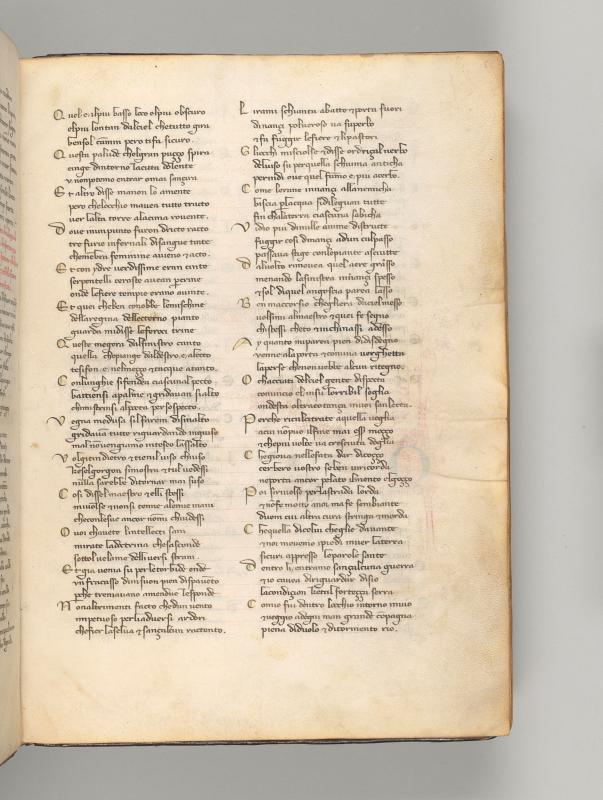 Quel e ilpiu basso loco elpiu obscuro
elpiu lontan dalciel chetutto gira
bensol camin pero tifa sicuro.
Questa palude chelgran puzzo spira
cinge dintorno lacitta dolente
u nonpotemo entrar omai sanzira
Et altro disse manon lo amente
pero chelocchio mauea tutto tracto
uer lalta torre alacima rouente.
Doue inunpunto furon dricto racto
tre furie infernali disangue tinte
chemembra feminine auieno & acto.
Et con ydre uerdissime eran cinte
serpentelli ceraste auean per crine
onde lefiere tempie erano auinte.
Et quei cheben conobbe lemischine
dellaregina delleterno pianto
guarda midisse leferoci trine
Questa megera dalsinistro canto
quella chepiange daldestro e alecto
tesifon e nelmezzo & tacque atanto.
Conlunghie sifendea ciascuna il pecto
battiensi apalme & gridauan sialto
chimistrinsi alpoeta per sospecto.
Vegna medusa silfarem dismalto
gridauan tutte riguardando ingiuso
mal nonuengiamo inteseo lassalto
Volgiti indietro & tien il uiso chiuso
chesel gorgon simostra & tul uedessi
nulla sarebbe ditornar mai suso
Cosi dissel maestro & elli stessi
miuolse & nonsi tenne alemie mani
checonlesue ancor nonmi chiudessi
O uoi chauete lintellecti sani
mirate ladoctrina chesasconde
sottol uelame delli uersi strani.
Et gia uenia su perletorbide onde
un fracasso dun suon pien dispauento
perche tremauano amendue lesponde
Non altrimenti facto chedun uento
impetuoso perliaduersi ardori
chefier laselua & sanzalcun rattento.
Lirami schianta abatte & porta fuori
dinanzi poluoroso ua superbo
& fa fuggir lefiere & lipastori
Gliocchi misciolse & disse or drizzal uerbo
deluiso su perquella schiuma anticha
perindi oue quel fumo e piu acerbo.
Come lerane innanzi allanemicha
biscia placqua sidileguan tutte
fin chalaterra ciascuna sabicha
Vidio piu dimille anime distructe
fuggir cosi dinanzi adun culpasso
passaua stige conlepiante asciutte
Dal uolto rimouea quel aere grasso
menando lasinistra innanzi spesso
& sol diquel angoscia parea lasso
Ben maccorsio chegliera dalciel messo
uolsimi almaestro & quei fe segno
chistessi cheto & inchinassi adesso
Ay quanto miparea pien didisdegno
uenne alaporta & conuna uerghetta
laperse chenon uebbe alcun ritegno.
O chacciati delciel gente dispecta
comincio el insu lorribil soglia
ondesta oltracotanza inuoi sanlecta.
Perche ricalcitrate aquella uoglia
acui nonpuo ilfine mai esser mozzo
& chepiu uolte ua cresciuta doglia
Che gioua nellefata dar dicozzo
cerbero uostro se ben uiricorda
neporta ancor pelato ilmento elgozzo
Poi siriuolse perlastrada lorda
& nofe motto anoi ma fe sembiante
duom cui altra cura stringa & morda
Che quella dicolui cheglie dauante
& noi mouemo ipiedi inuer laterra
sicuri appresso leparole sante
Dentro li entramo sanzalcuna guerra
& io cauea diriguardar disio
lacondizion chetal fortezza serra
Comio fui dentro locchio intorno inuio
& ueggio adogni man grande compagna
piena diduolo & ditormento rio.